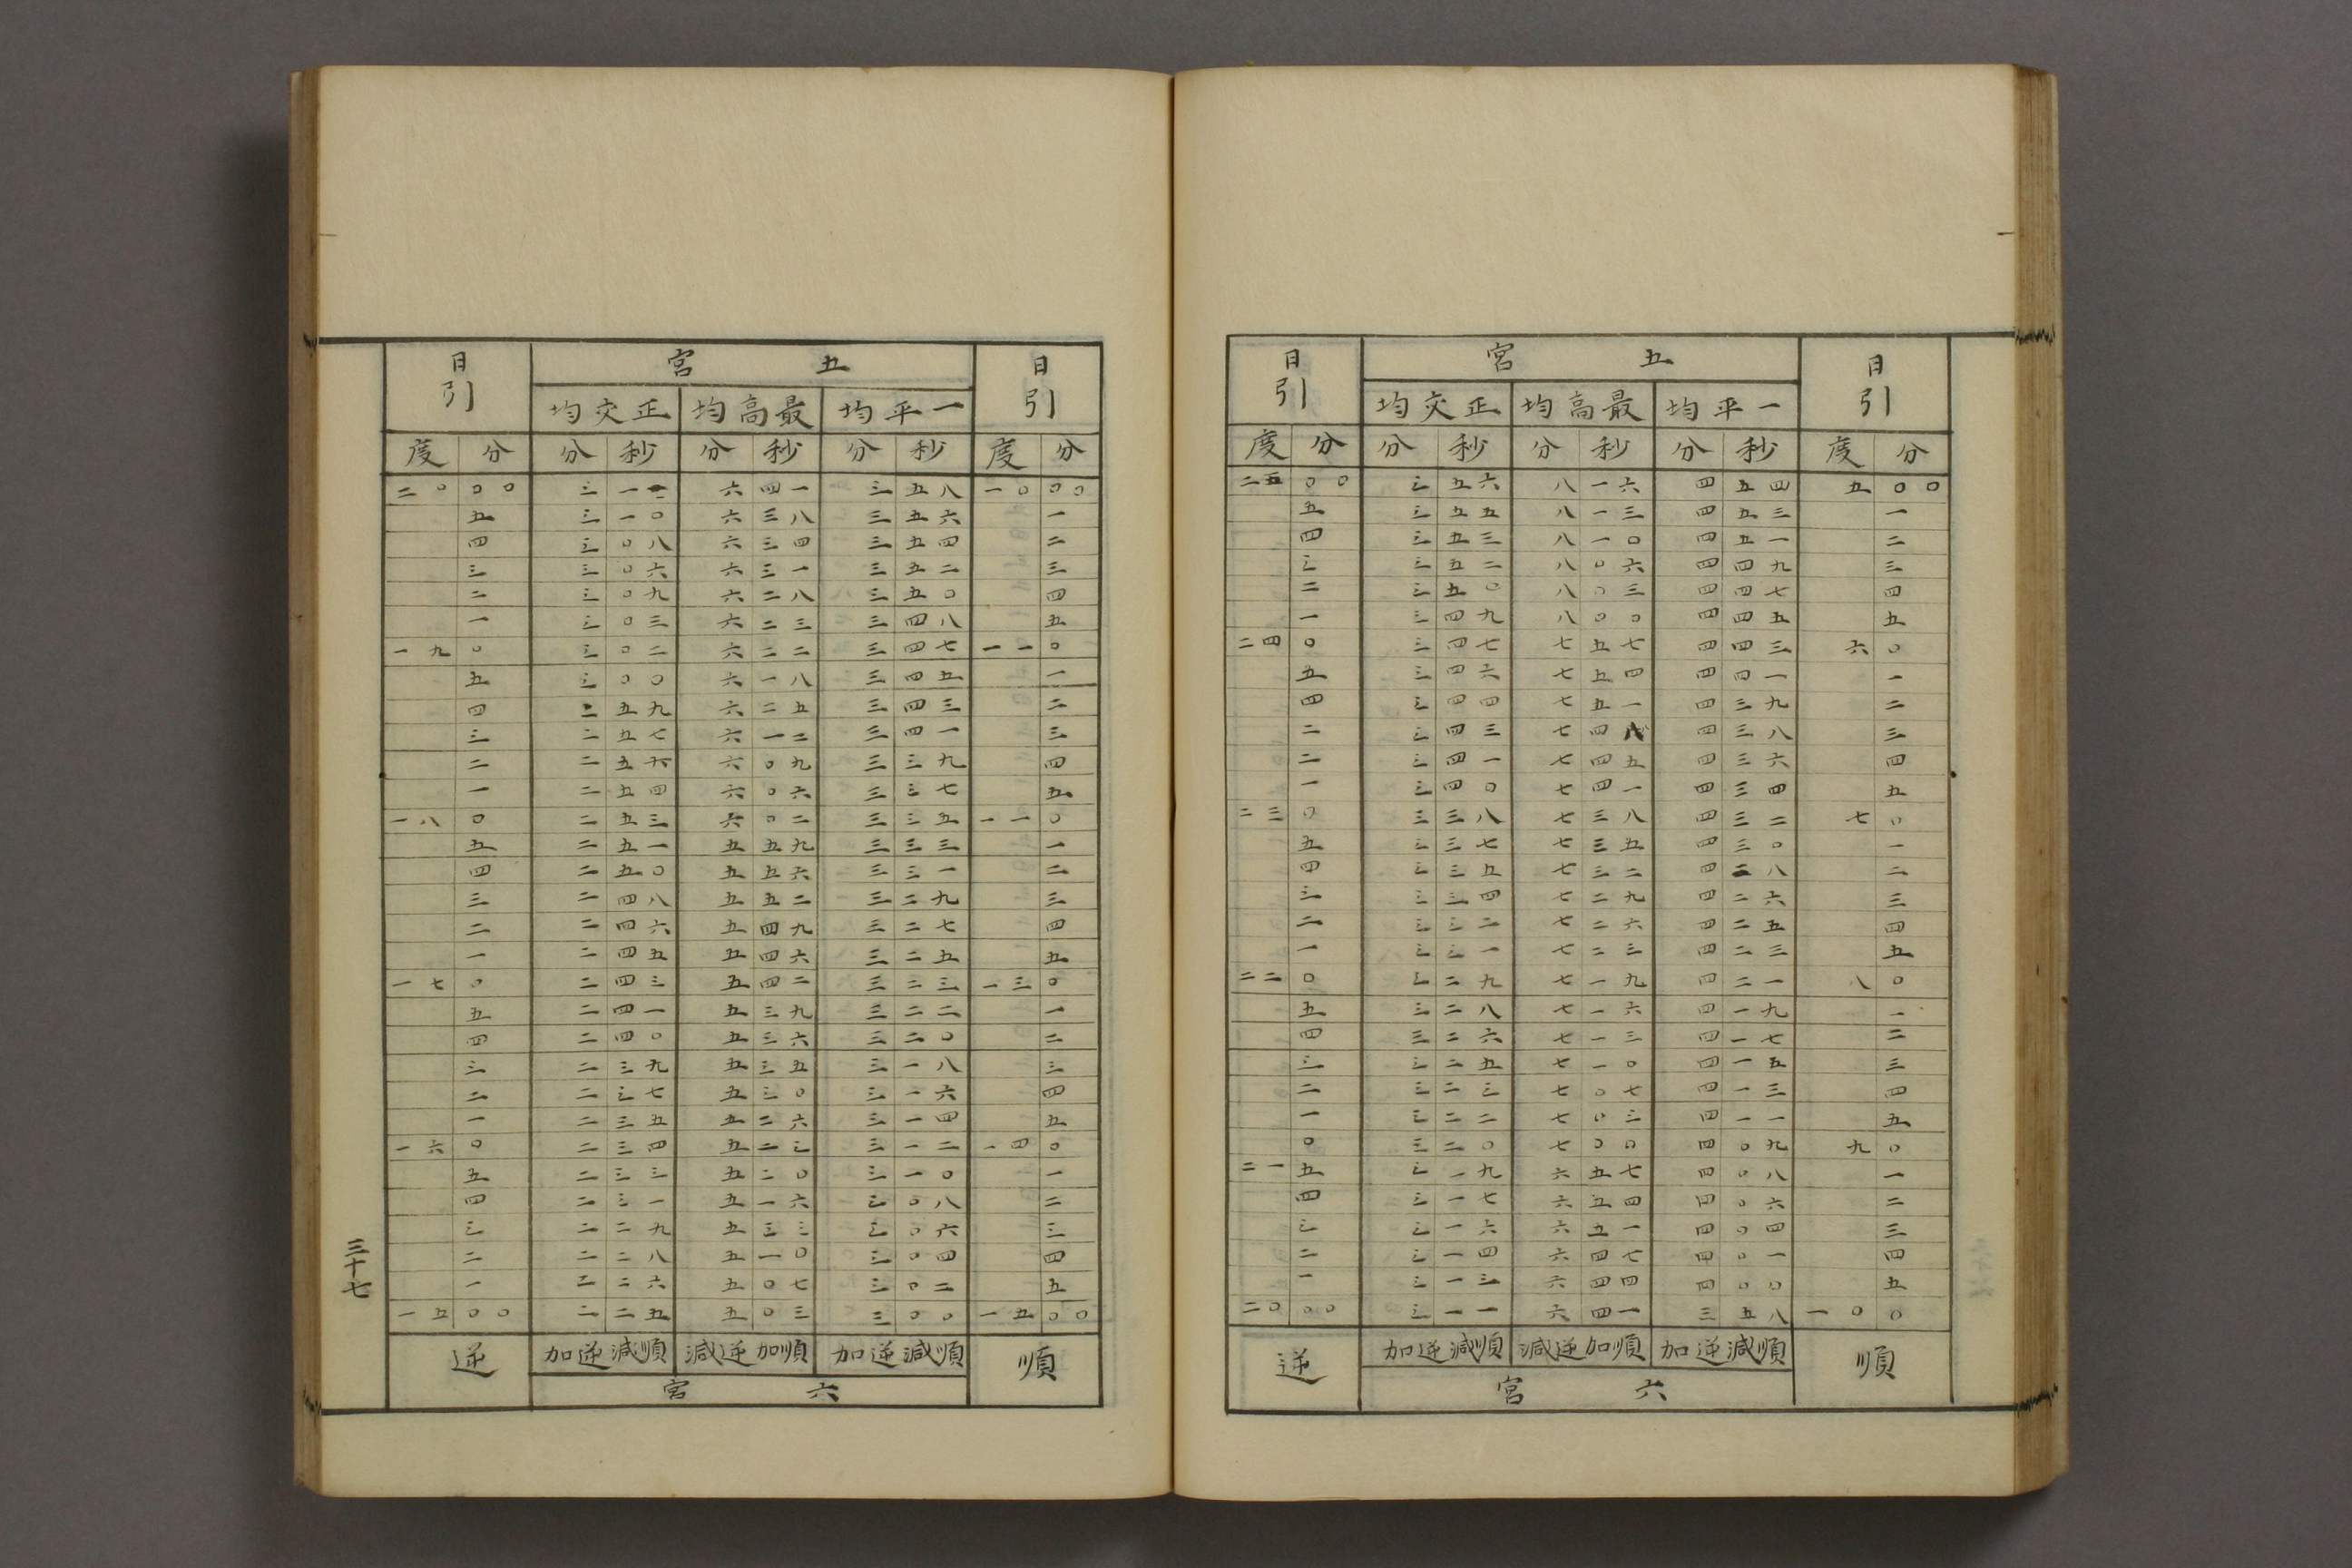 日引 五宮 日引
一平均 最高均 正交均
度 分 分 秒 分 秒 分 秒 度 分
二五 〇〇 三 五六 八 一六 四 五四 五 〇〇
五 三 五五 八 一三 四 五三 一
四 三 五三 八 一〇 四 五一 二
三 三 五二 八 〇六 四 四九 三
二 三 五〇 八 〇三 四 四七 四
一 三 四九 八 〇〇 四 四五 五
二四 〇 三 四七 七 五七 四 四三 六 〇
五 三 四六 七 五四 四 四一 一
四 三 四四 七 五一 四 三九 二
二 三 四三 七 四八 四 三八 三
二 三 四一 七 四五 四 三六 四
一 三 四〇 七 四一 四 三四 五
二三 〇 三 三八 七 三八 四 三二 七 〇
五 三 三七 七 三五 四 三〇 一
四 三 三五 七 三二 四 二八 二
三 三 三四 七 二九 四 二六 三
二 三 三二 七 二六 四 二五 四
一 三 三一 七 二三 四 二三 五
二二 〇 三 二九 七 一九 四 二一 八 〇
五 三 二八 七 一六 四 一九 一
四 三 二六 七 一三 四 一七 二
三 三 二五 七 一〇 四 一五 三
二 三 二三 七 〇七 四 一三 四
一 三 二二 七 〇三 四 一一 五
〇 三 二〇 七 〇〇 四 〇九 九 〇
二一 五 三 一九 六 五七 四 〇八 一
四 三 一七 六 五四 四 〇六 二
三 三 一六 六 五一 四 〇四 三
二 三 一四 六 四七 四 〇一 四
一 三 一三 六 四四 四 〇〇 五
二〇 〇〇 三 一一 六 四一 三 五八 一〇 〇
逆 順減逆加 順加逆減 順減逆加 順
六宮
日引 五宮 日引
一平均 最高均 正交均
度 分 分 秒 分 秒 分 秒 度 分
二〇 〇〇 三 一二 六 四一 三 五八 一〇 〇〇
五 三 一〇 六 三八 三 五六 一
四 三 〇八 六 三四 三 五四 二
三 三 〇六 六 三一 三 五二 三
二 三 〇九 六 二八 三 五〇 四
一 三 〇三 六 二三 三 四八 五
一九 〇 三 〇二 六 二二 三 四七 一一 〇
五 三 〇〇 六 一八 三 四五 一
四 二 五九 六 二五 三 四三 二
三 二 五七 六 一二 三 四一 三
二 二 五六 六 〇九 三 三九 四
一 二 五四 六 〇六 三 三七 五
一八 〇 二 五三 六 〇二 三 三五 一一 〇
五 二 五一 五 五九 三 三三 一
四 二 五〇 五 五六 三 三一 二
三 二 四八 五 五二 三 二九 三
二 二 四六 五 四九 三 二七 四
一 二 四五 五 四六 三 二五 五
一七 〇 二 四三 五 四二 三 二三 一三 〇
五 二 四一 五 三九 三 二二 一
四 二 四〇 五 三六 三 二〇 二
三 二 三九 五 三五 三 一八 三
二 二 三七 五 三〇 三 一六 四
一 二 三五 五 二六 三 一四 五
一六 〇 二 三四 五 二三 三 一二 一四 〇
五 二 三三 五 二〇 三 一〇 一
四 二 三一 五 一六 三 〇八 二
三 二 二九 五 三三 三 〇六 三
二 二 二八 五 一〇 三 〇四 四
一 二 二六 五 〇七 三 〇二 五
一五 〇〇 二 二五 五 〇三 三 〇〇 一五 〇〇
逆 順減逆加 順加逆減 順減逆加 順
六宮
三十七